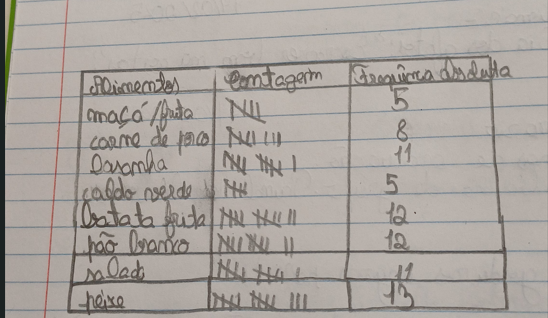 Alimentos Contagem Frequência absoluta
maçã/fruta 5
carne de porco 8
Lasanha 11
caldo verde 5
Batata frita 12
pão branco 12
salada 11
peixe 13